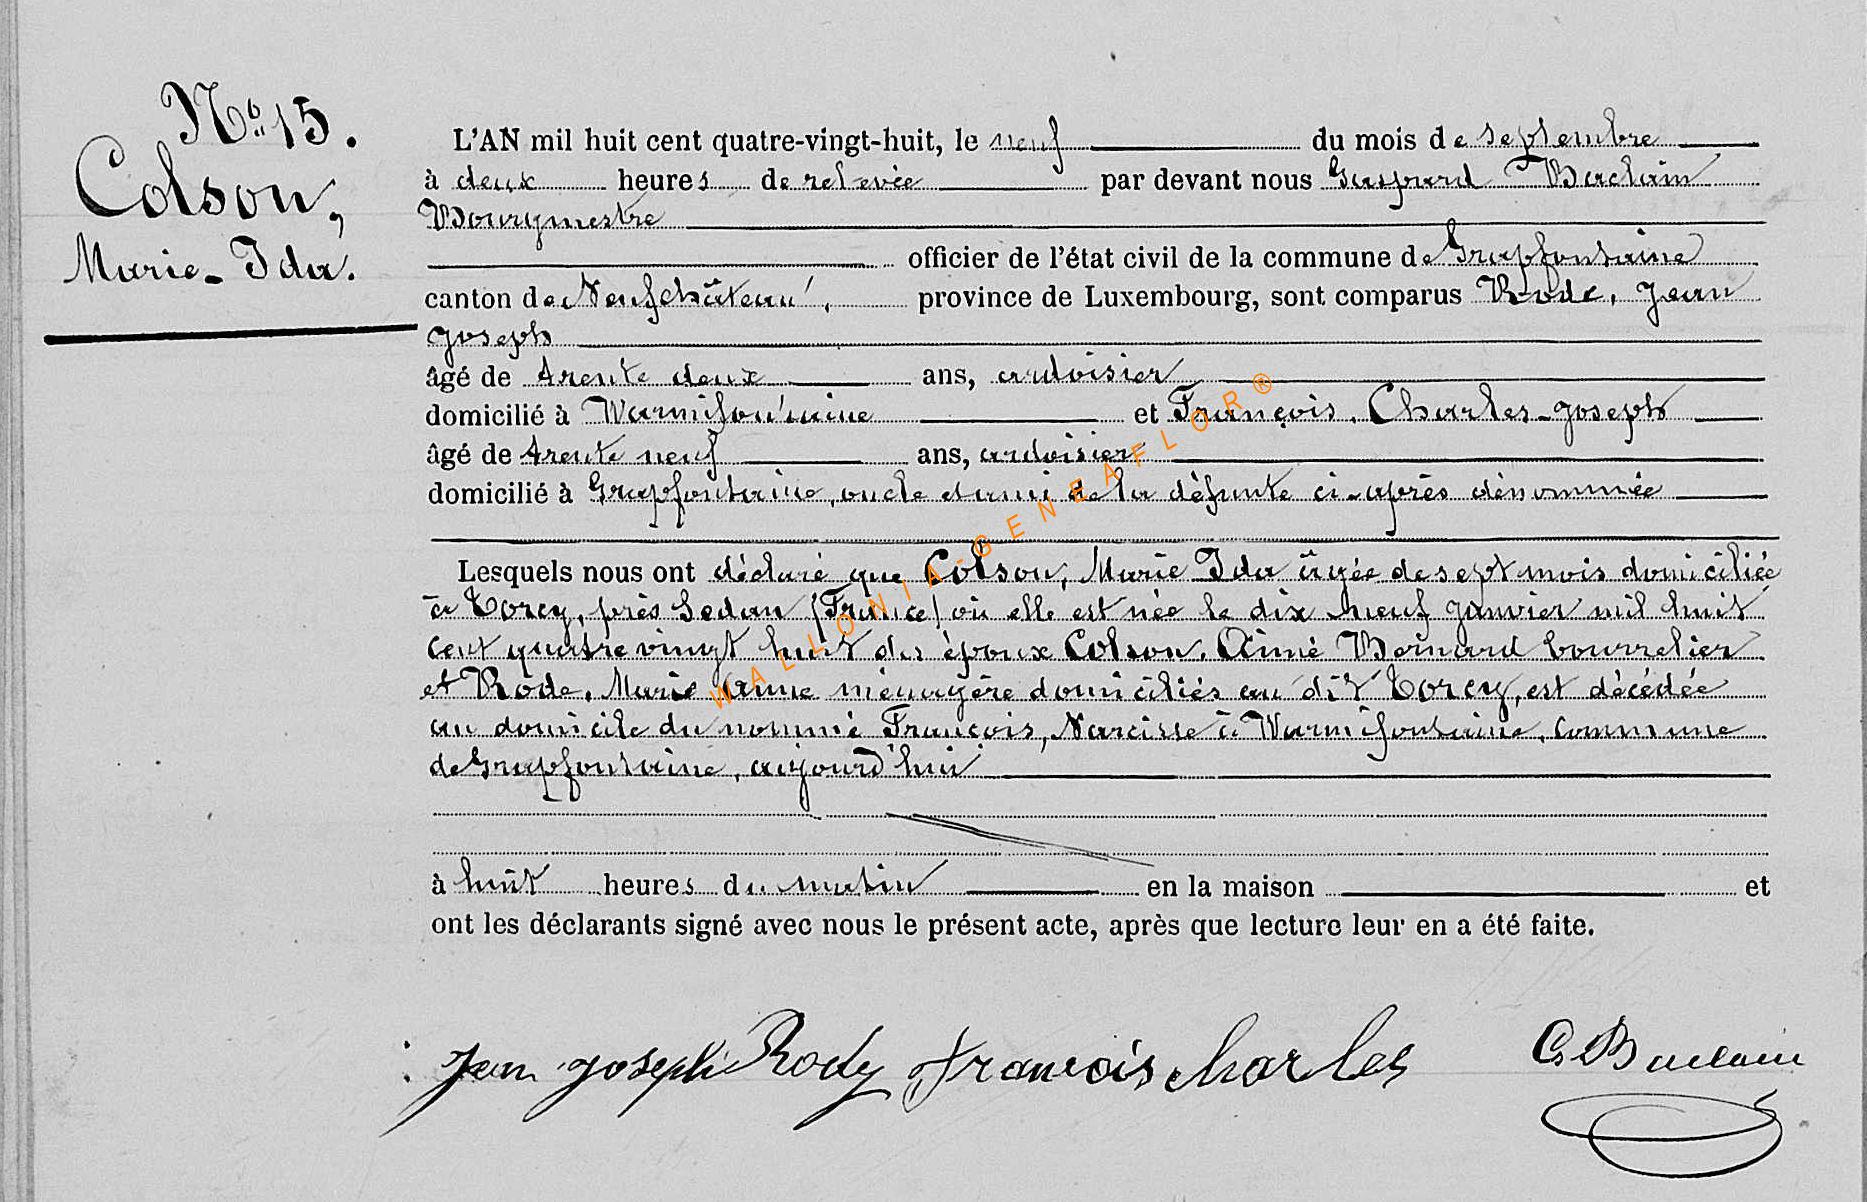 No 15.
Colson,
Marie-Ida.
L'AN mil huit cent quatre-vingt-huit, le neuf du mois de septembre
à deux heures de relevée par devant nous Gaspard Baclain
Bourgmestre
officier de l'état civil de la commune de Grapfontaine
canton de Neufchâteau, province de Luxembourg, sont comparus Rode, Jean
Joseph
âgé de trente deux ans, ardoisier
domicilié à Warmifontaine et François, Charles-Joseph
âgé de trente neuf ans, ardoisier
domicilié à Grapfontaine, oncle et ami de la défunte ci-après dénommée
Lesquels nous ont déclaré que Colson, Marie Ida âgée de sept mois domiciliée
à Torcy, près Sedan (France) où elle est née le dix neuf janvier mil huit
cent quatre vingt huit des époux Colson, Aimé Bernard bourrelier
et Rode, Marie Anne ménagère domiciliés au dit Torcy, est décédée
au domicile du nommé François, Narcisse à Warmifontaine, commune
de Grapfontaine, aujourd'hui
à huit heures du matin en la maison et
ont les déclarants signé avec nous le présent acte, après que lecture leur en a été faite.
Jean Joseph Rody François Charles G Baclain
WALLONIA-GENEAFLOR®